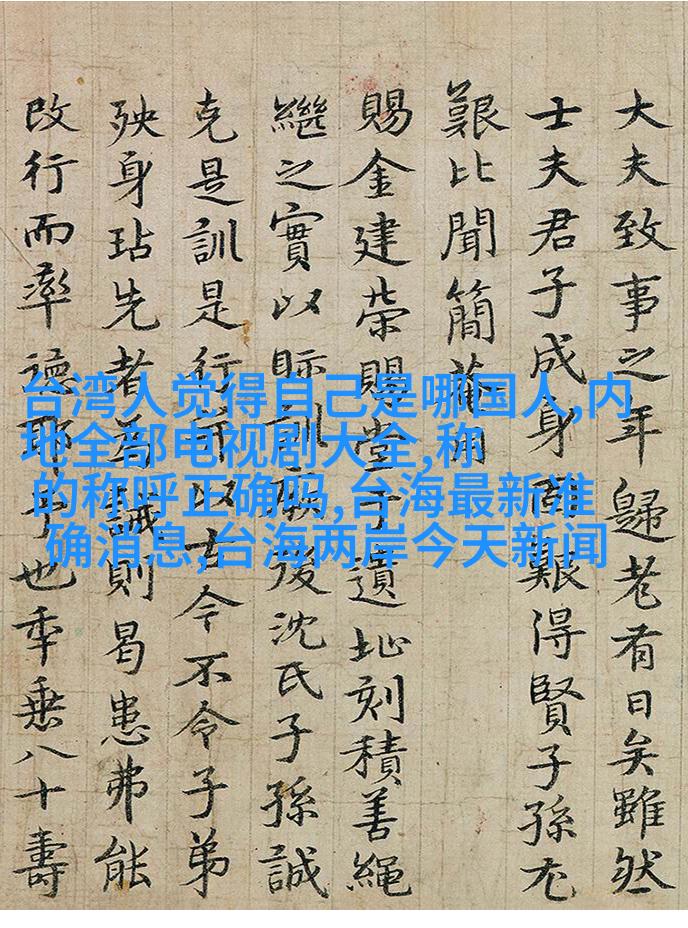 大夫致事之年歸老有日矣雖然
士夫君子成身艱得賢子孫尤
艱比聞簡菴用
賜金建榮賜堂于遺址刻積善繩
繼之實以眎訓厥後沈氏子孫誠
克是訓是行以古令不令子弟
殃身玷先者為誡則曷患弗能
改行而率德耶予也年垂八十壽
台湾人觉得自己是哪国人,内
地全部电视剧大全,称
的称呼正确吗,台海最新准
确消息,台海两岸今天新闻